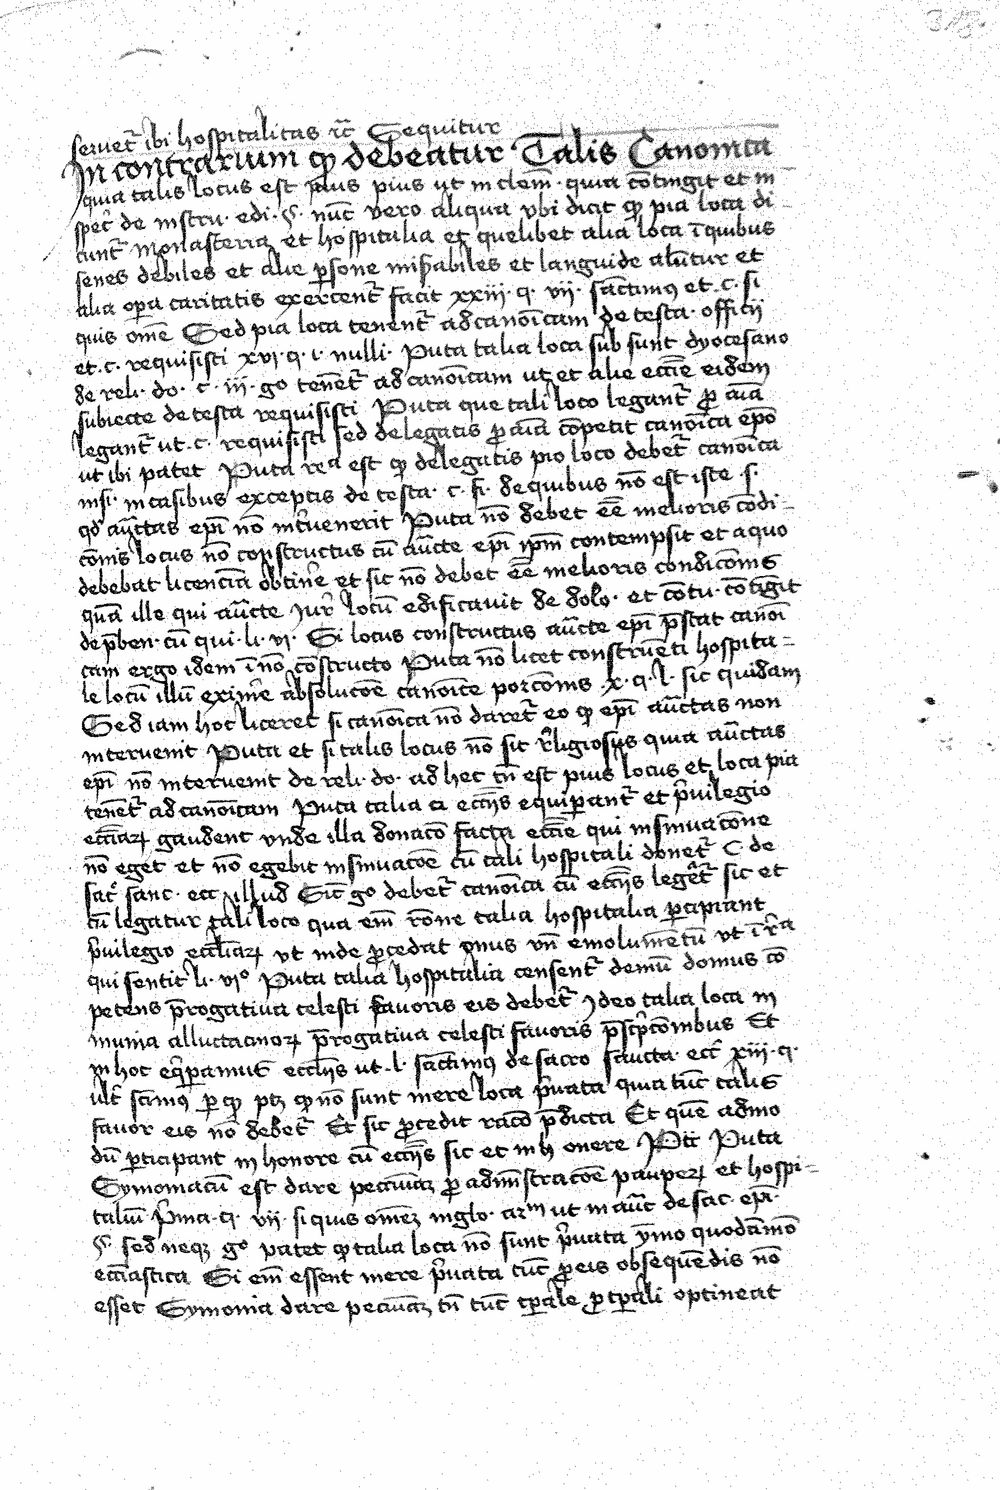 seruet᷑ ibi hospitalitas ⁊c̄ Sequitur
In contrarium ꝙ debeatur Talis Canonica
quia talis locus est pius ut in clem̄· quia cōtingit et in
spec̄ de instru· edi· §· nūc vero aliqua vbi dicit ꝙ pia loca di-
cunt᷑ monasteria et hospitalia et quelibet alia loca ī quibus
senes debiles et alie ꝑsone misꝑabiles et languide alūtur et
alia oꝑa caritatis exercent᷑ facit xxiii· q· vii· sanctimꝰ et· c· si
quis om̄e Sed pia loca tenent᷑ ad canoīcam de testa· officii
et· c· requisisti xvi· q· i· nulli· Puta talia loca sub sunt dyocesano
de reli· do· c· iii· gᵒ tenent᷑ ad canoīcam ut et alie ecc̄ie eidem
subiecte de testa requisisti Puta que tali loco legant᷑ ꝓ aīa
legant᷑ ut· c· requisisti sed de legatis ꝓ aīa cōpetit canoīca ep̄o
ut ibi patet Puta reᵃ est ꝙ de legatis pio loco debet᷑ canoīca
nisi· in casibus exceptis de testa· c· fi· de quibus nō est iste· s·
qđ auctās ep̄i nō int᷑uenerit Puta nō debet eē melioris cōdi-
cōnis locus nō constructus cū aucte ep̄i ip̄m contempsit et a quo
debebat licenciā obtin̄e et sic nō debet eē melioris condicōnis
quā ille qui aucte iur̄ locū edificauit de dolo· et cōtu· cōtīgit
de p̄ben· cū qui· li· vi· Si locus constructus aucte ep̄i p̄stat canoī
cam ergo idem ī nō cōstructo Puta nō licet construenti hospita-
le locū illū exim̄e absolucōe canoīce porcōnis· x· q· i· sic quidam
Sed iam hoc liceret si canoīca nō daret᷑ eo ꝙ ep̄i auctās non
interuenit Puta et si talis locus nō sit r̄ligiosus quia auctās
ep̄i nō interuenit de reli· do· ad hec tn̄ est pius locus et loca pia
tenēt᷑ ad canoīcam Puta talia ecc̄iis equiꝑant᷑ et p̄uilegio
ecc̄iaꝝ gaudent vnde illa donacō facta ecc̄ie qui insinuacōne
nō eget et nō egebit insinuacōe cū tali hospitali donet᷑ C de
sac̄ sanc· ecc illud Sic̄ gᵒ debet᷑ canoīca cū ecc̄iis leget᷑ sic et
cū legatur tali loco qua em̄ rōne talia hospitalia ꝑcipiant
p̄uilegio ecc̄iaꝝ vt inde ꝓcedat onus vn̄ emolumētū vt ī r̄a
qui sentit li· viᵒ Puta talia hospitalia censent᷑ demū domus cō
petens p̄rogatiua celesti fauoris eis debet᷑ Ideo talia loca in
p̄rogatiua celesti fauoris Et
in hoc eq̄ꝑamus ecc̄iis ut· l· sanctimꝰ de sacro sancta· ecc̄ xiii· q·
ult̄ scimꝰ ꝑ ꝙ ptꝫ ꝙ nō sunt mere loca p̄uata quia tūc talis
fauor eis nō debet᷑ Et sic ꝓcedit racō p̄dicta Et quē admo
dū ꝑticipant in honore cū ecc̄iis sic et in onere Puta
Symoniacū est dare pecuniaꝫ ꝓ administracōe pauperꝝ et hospi-
taliū p̄ma· q· vii· si quis om̄eꝫ in glo· ut in auct̄ de sac· ep̄i·
§· sed neqꝫ gᵒ patet ꝙ talia loca nō sunt p̄uata ymo quodāmō
ecc̄iastica Si em̄ essent mere p̄uata tūc ꝓ eis obsequēdis nō
esset Symonia dare pecuniaꝫ tn̄ tūc tꝑale ꝓ tꝑali optineat